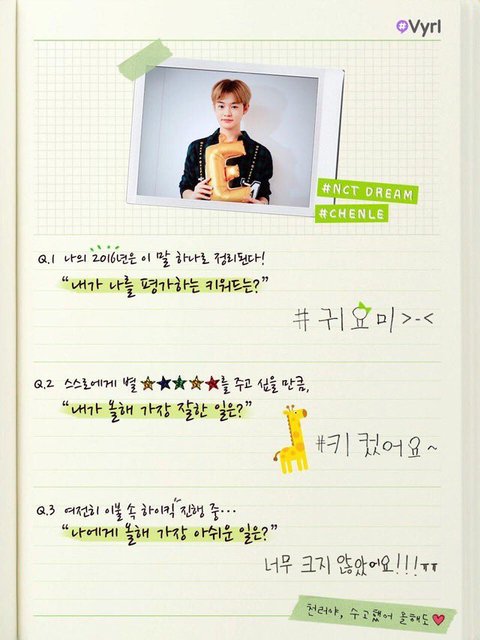 #Vyrl
E
#NCT DREAM
#CHENLE
Q.1 나의 2016년은 이 말 하나로 정리된다!
“내가 나를 평가하는 키워드는?”
# 귀요미 >-<
Q.2 스스로에게 별 ★★★★★를 주고 싶을 만큼,
“내가 올해 가장 잘한 일은?”
#키 컸어요~
Q.3 여전히 이불 속 하이킥 진행 중...
“나에게 올해 가장 아쉬운 일은?”
너무 크지 않았어요!!! ㅠㅠ
천러야, 수고했어 올해도♥